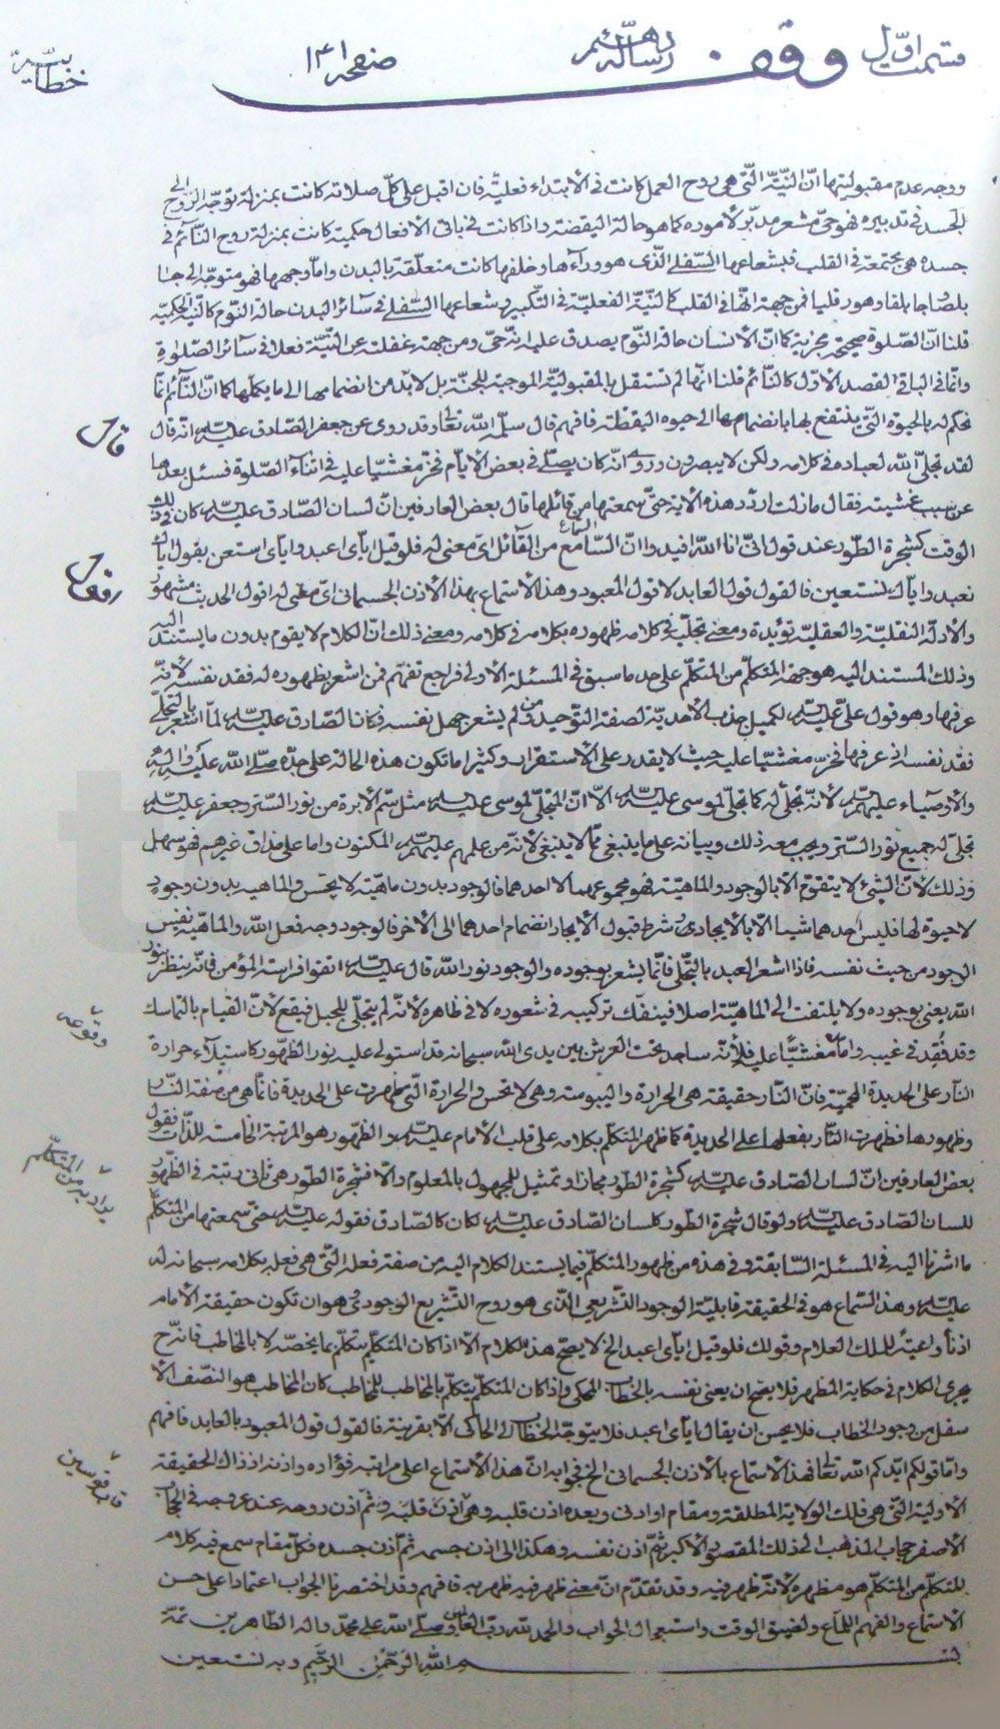 قسمت اول وقف رساله صفحه ۱۴۱ خطابیه
ووجه عدم مقبوليتها انّ النيّة الّتى هى روح العمل كانت فى الابتداء فعليّة فان اقبل على كلّ صلاته كانت بمنزلة توجّه الرّوح الى
الجسد فى تدبيره فهو حىّ مشعر مدبّر لاموره كما هو حالة اليقضة واذا كانت فى باقى الافعال حكمية كانت بمنزلة روح النّائم فى
جسده هى مجتمعة فى القلب فبشعاعها السّفلى الّذى هو وراءها وخلفها كانت متعلّقة بالبدن واما وجهها فهو متوجّه الى جا
بلصا جابلقا وهورقليا فمن جهة انّها فى القلب كالنّية الفعليّة فى التّكبير وشعاعها السّفلى فى سائر البدن حالة النّوم كالنّية الحكميّة
قلنا انّ الصّلوة صحيحة مجزية كما انّ الانسان حالة النّوم يصدق عليه انّه حىّ ومن جهة غفلته عن النّيّة فعلا فى سائر الصّلوة
وانّما فى الباقى القصد الاوّل كالنّائم قلنا انّها لم تستقل بالمقبوليّة الموجبة للجنّة بل لابدّ من انضمامها الى ما يكملها كما انّ النّائم انّما
نحكم له بالحيوة الّتى ينتفع بها بانضمامها الى حيوه اليقظة فافهم قال سلّمه الله تعالى وقد روى عن جعفر الصّادق عليه السّلام انّه قال
لقد تجلّى الله لعباده فى كلامه ولكن لا يبصرون وروى انّه كان يصلّى فى بعض الايام فخرّ مغشيّا عليه فى اثناء الصّلوة فسئل بعدها
عن سبب غشيته فقال ما زلت اردّد هذه الاية حتّى سمعتها من قائلها قال بعض العارفين انّ لسان الصّادق عليه السّلام كان فى ذلك
الوقت كشجرة الطّور عند قول انّى انا الله افيدوا انّ السّماع السّامع من القائل اىّ معنى له فلو قيل اياى اعبد واياى استعن بقول اياك
نعبد واياك نستعين فالقول قول العابد لا قول المعبود وهذا الاستماع بهذا الاذن الجسمانى اىّ معنى له اقول الحديث مشهور
والادلّة النقليّة والعقليّة تؤيدة ومعنى تجلّيه فى كلامه ظهوره بكلامه فى كلامه ومعنى ذلك انّ الكلام لا يقوم بدون ما يستند اليه
وذلك المستند اليه هو جهة المتكلّم من المتكلّم على حد ما سبق فى المسئلة الاولى فراجع تفهم فمن اشعر بظهوره له فقد نفسه لانّه
عرفها وهو قول علىّ عليه السّلام لكميل جذب الاحديّة لصفة التوحيد ومن لم يشعر جهل نفسه فكان الصّادق عليه السّلام لما اشعر بالتّجلّى
فقد نفسه اذ عرفها فخرّ مغشيّا عليه حيث لا يقدر على الاستقرار وكثيرا ما تكون هذه الحالة على جدّه صلّى الله عليه وآله
والاوصياء عليهم السّلام لانّه تجلّى له كما تجلّى لموسى عليه السّلام الّا انّ المتجلّى لموسى عليه السّلام مثل سمّ الابرة من نور السّتر وجعفر عليه السّلام
تجلّى له جميع نور السّتر ويجب معه ذلك وبيانه على ما ينبغى ممّا لا ينبغى لانّه من علمهم عليهم السّلام المكنون واما على مذاق غيرهم فهو سهل
وذلك لانّ الشّئ لا يتقوّم الّا بالوجود والماهيّة فهو مجموعهما لا احدهما فالوجود بدون ماهيّة لا يحسّ والماهيه بدون وجود
لا حيوة لها فليس احدهما شيئا الّا بالايجاد وشرط قبول الايجاد انضمام احدهما الى الاخر فالوجود وجه فعل الله والماهيّة نفس
الوجود من حيث نفسه فاذا اشعر العبد بالتّجلّى فانّما يشعر بوجوده والوجود نور الله قال عليه السّلام اتقوا فراسة المؤمن فانّه ينظر بنور
الله يعنى بوجوده ولا يلتفت الى الماهيّة اصلا فينفك تركيبه فى شعوره لا فى ظاهره لانّه لم يتجلّى للجبل فيقع لانّ القيام بالتماسك
وقد فقد فى غيبه واما مغشيّا عليه فلانّه ساجد تحت العرش بين يدى الله سبحانه قد استولى عليه نور الظّهور كاستيلاء حرارة
النّار على الحديدة المحميّة فانّ النّار حقيقة هى الحرارة واليبوسة وهى لا تحس والحرارة الّتى ظهرت على الحديدة فانّما هى من صفة النّار
وظهورها فظهرت النّار بفعلها على الحديدة كما ظهر المتكلّم بكلامه على قلب الامام عليه السّلام والظّهور هو المرتبة الخامسة للذّات فقول
بعض العارفين انّ لسان الصّادق عليه السّلام كشجرة الطّور مجاز وتمثيل للمجهول بالمعلوم والّا فشجرة الطّور هى ثانى رتبة فى الظّهور
للسان الصّادق عليه السّلام ولو قال شجرة الطّور كلسان الصّادق عليه السّلام لكان كالصّادق فقوله عليه السّلام حتّى سمعتها من المتكلّم
ما اشرنا اليه فى المسئلة السّابقة وفى هذه من ظهور المتكلّم فيما يستند الكلام اليه من صفة فعله الّتى هى فعله بكلامه سبحانه له
عليه السّلام وهذا السّماع هو فى الحقيقة قابليّة الوجود التّشريعى الّذى هو روح التّشريع الوجودى وهو ان تكون حقيقة الامام
اذنا واعية للملك العلّام وقولك فلو قيل اياى اعبد الخ لا يصحّ هذا الكلام الّا اذا كان المتكلّم يتكلّم بما يخصّه لا بالمخاطب فانّه ح
يجرى الكلام فى حكاية المظهر فلا يصح ان يعنى نفسه بالخطاب المحكى واذا كان المتكلّم يتكلّم بالمخاطب للمخاطب كان المخاطب هو النّصف الا
سفل من وجود الخطاب فلا يحسن ان يقال اياى اعبد فلا يتوجّه الخطاب الى الحاكى الّا بقرينة فالقول قول المعبود بالعابد فافهم
واما قولكم ايّدكم الله تعالى فهذا الاستماع بالاذن الجسمانى الخ فجوابه انّ هذا الاستماع اعلى مراتبه فؤاده واذنه اذ ذاك الحقيقة
الاولية الّتى هى فلك الولاية المطلقة ومقام او ادنى وبعده اذن قلبه وهى اذن قلبه وثمّ اذن روحه عند عروجه فى الحجاب
الاصفر حجاب الذهب الى ذلك المقصود الاكبر ثمّ اذن نفسه وهكذا الى اذن جسمه ثمّ اذن جسده فكلّ مقام سمع فيه كلام
المتكلّم من المتكلّم هو مظهره لانّه ظهر فيه وقد تقدّم انّ معنى ظهر فيه ظهر به فافهم وقد اختصرنا الجواب اعتمادا على حسن
الاستماع والفهم اللمّاع ولضيق الوقت واستعجال الجواب والحمد لله ربّ العالمين وصلّى الله على محمّد واله الطّاهرين تمّت
بسم الله الرّحمن الرّحيم وبه نستعين
قال
اقول
وقوعه
يراد به من المتكلّم
قاب قوسين